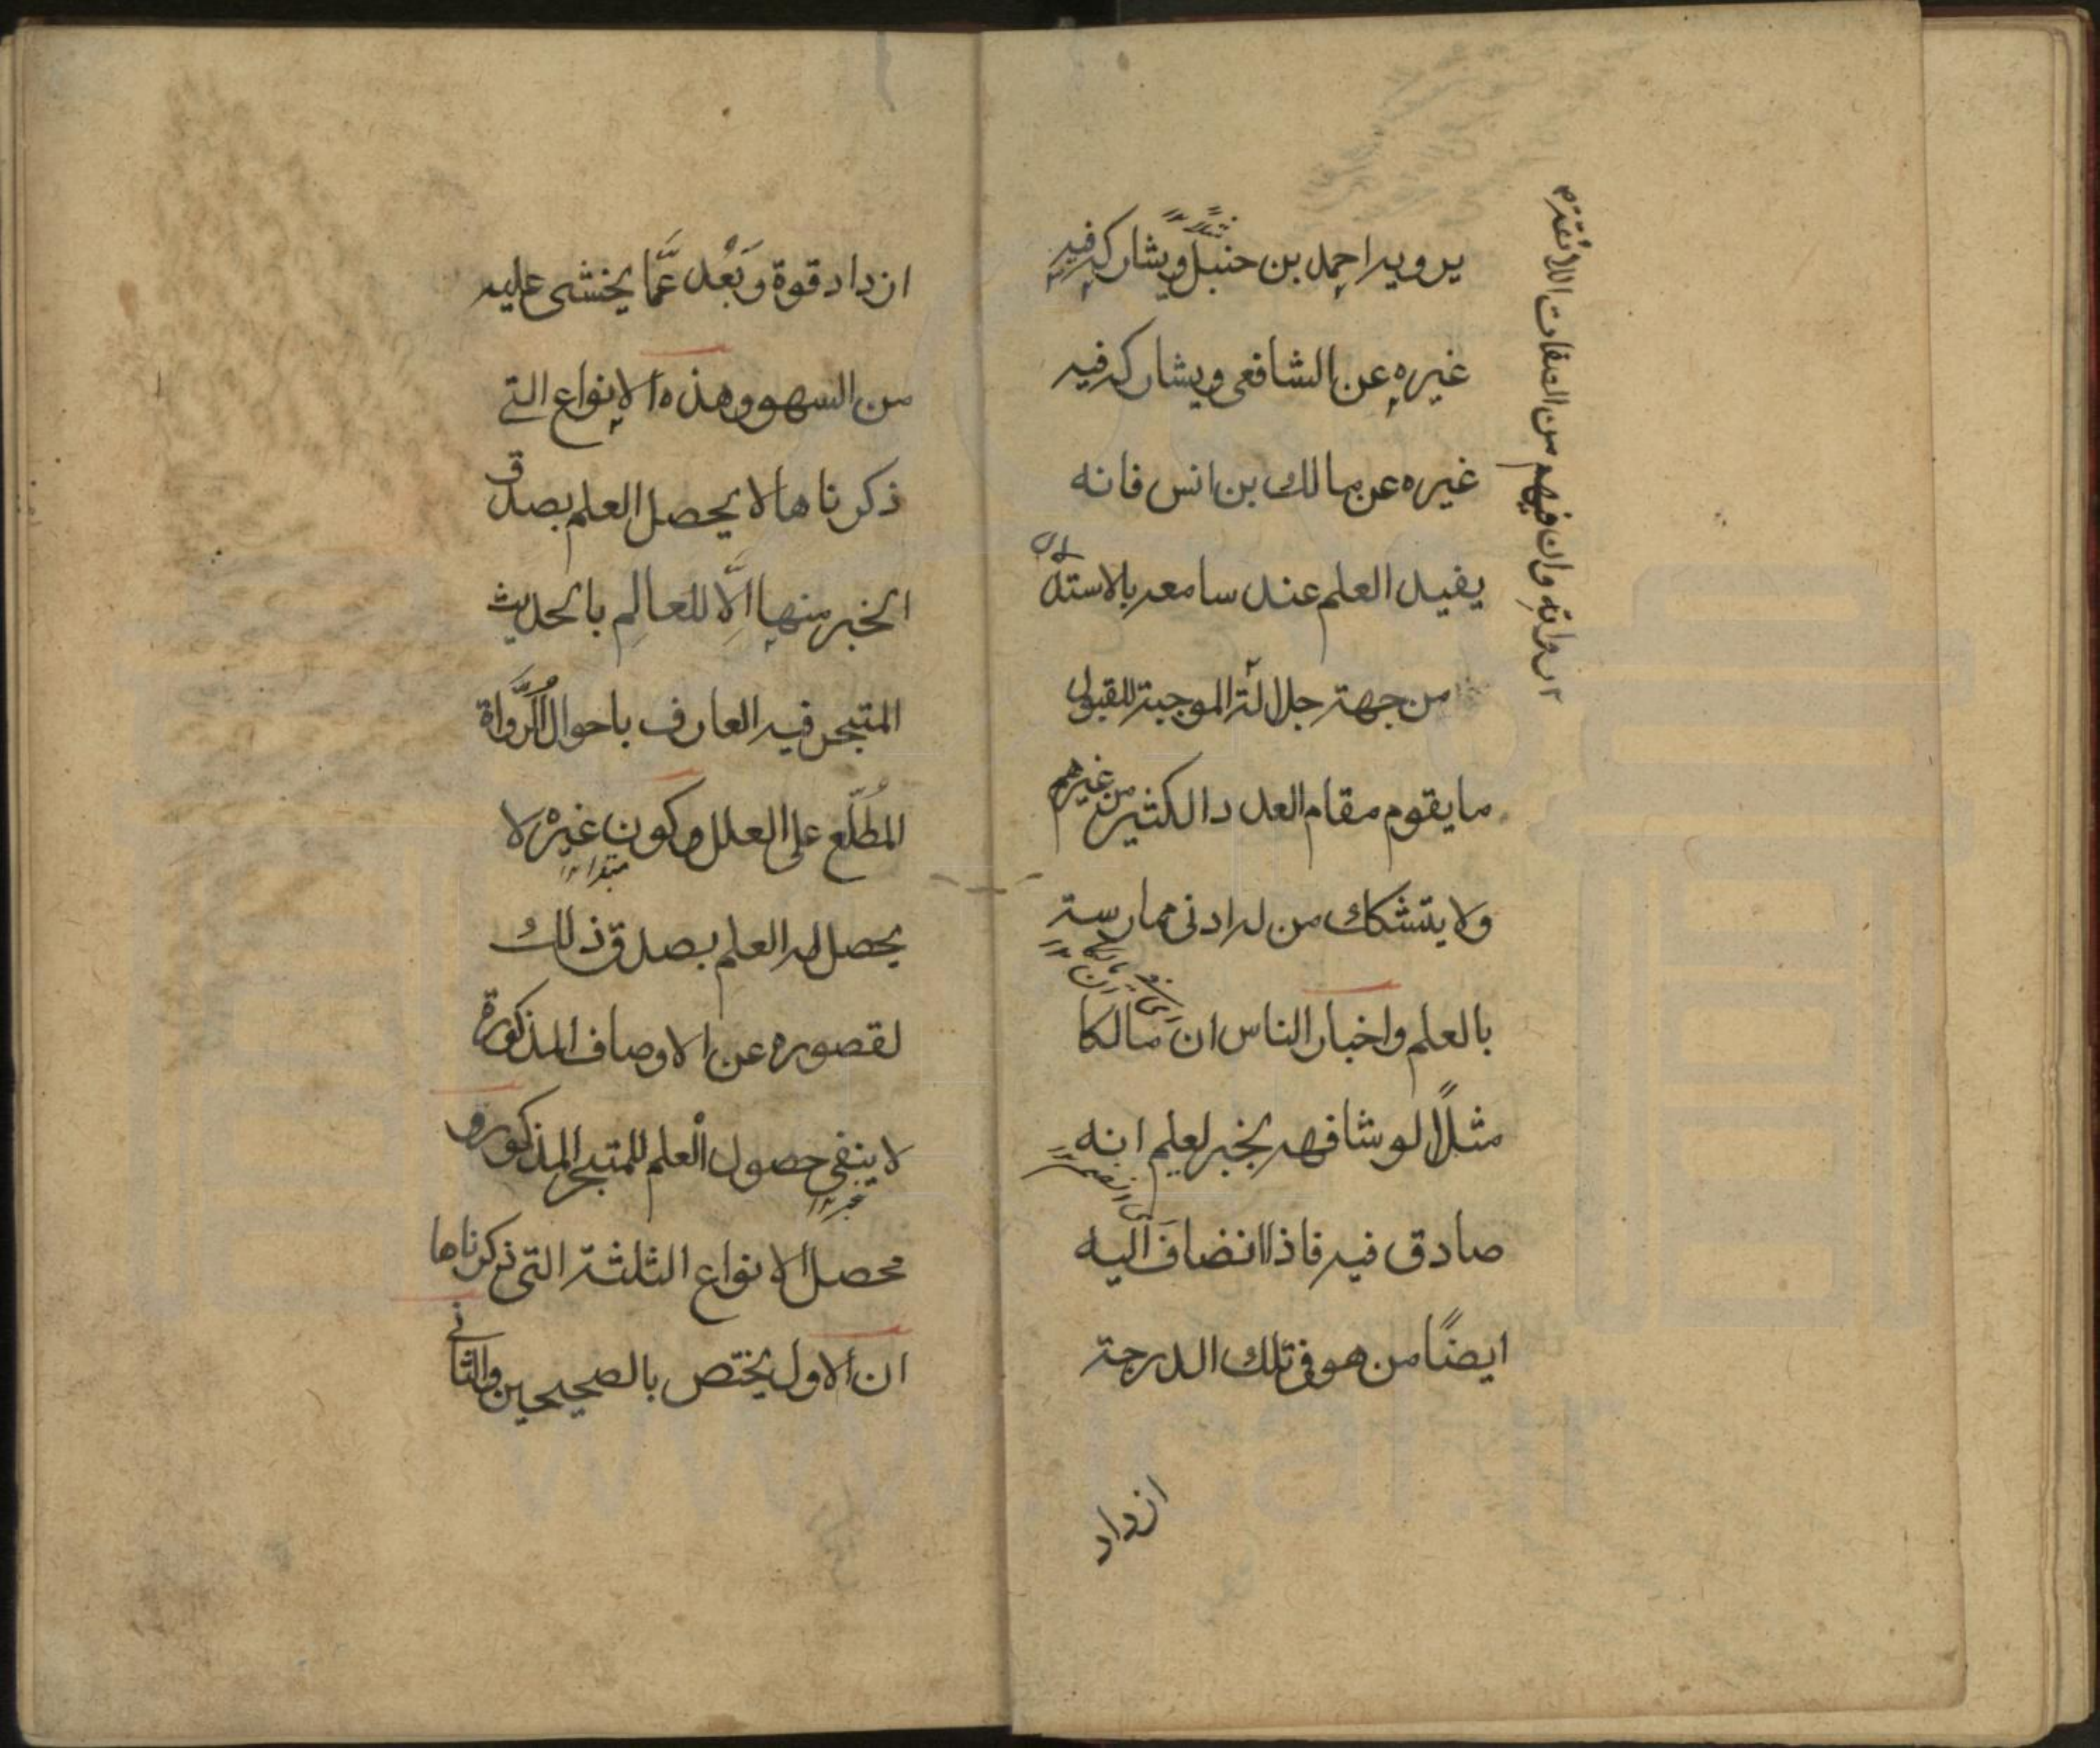 يرويه احمد بن حنبل ويشاركه فيه
مثلا
غيره عن الشافعى ويشاركه فيه
غيره عن مالك بن انس فانه
يفيد العلم عند سامعه بالاستدلال
من جهة جلالة الموجبة للقبول
ما يقوم مقام العدد الكثير من غيرهم
ولا يتشكك من له ادنى ممارسة
بالعلم واخبار الناس ان مالكا
مثلًا لو شافهه بخبر لعلم انه
صادق فيه فاذا انضاف اليه
ايضًا من هو فى تلك الدرجة
ازداد
رواته وان فيهم من الصفات اللائقة
ازداد قوة وبَعُد عمَّا يخشى عليه
من السهو وهذه الانواع التى
ذكرناها لا يحصل العلم بصدق
الخبر منها الَّا للعالِم بالحديث
المتبحر فيه العارف باحوال الرُّواة
المُطَّلع على العلل وكون غيره لا
مبتدا
يحصل له العلم بصدق ذلك
لقصوره عن الاوصاف المذكورة
لا ينفى حصول العلم للمتبحر المذكور و
خبر
محصل الانواع الثلثة التى ذكرناها
ان الاول يختص بالصحيحين والثانى